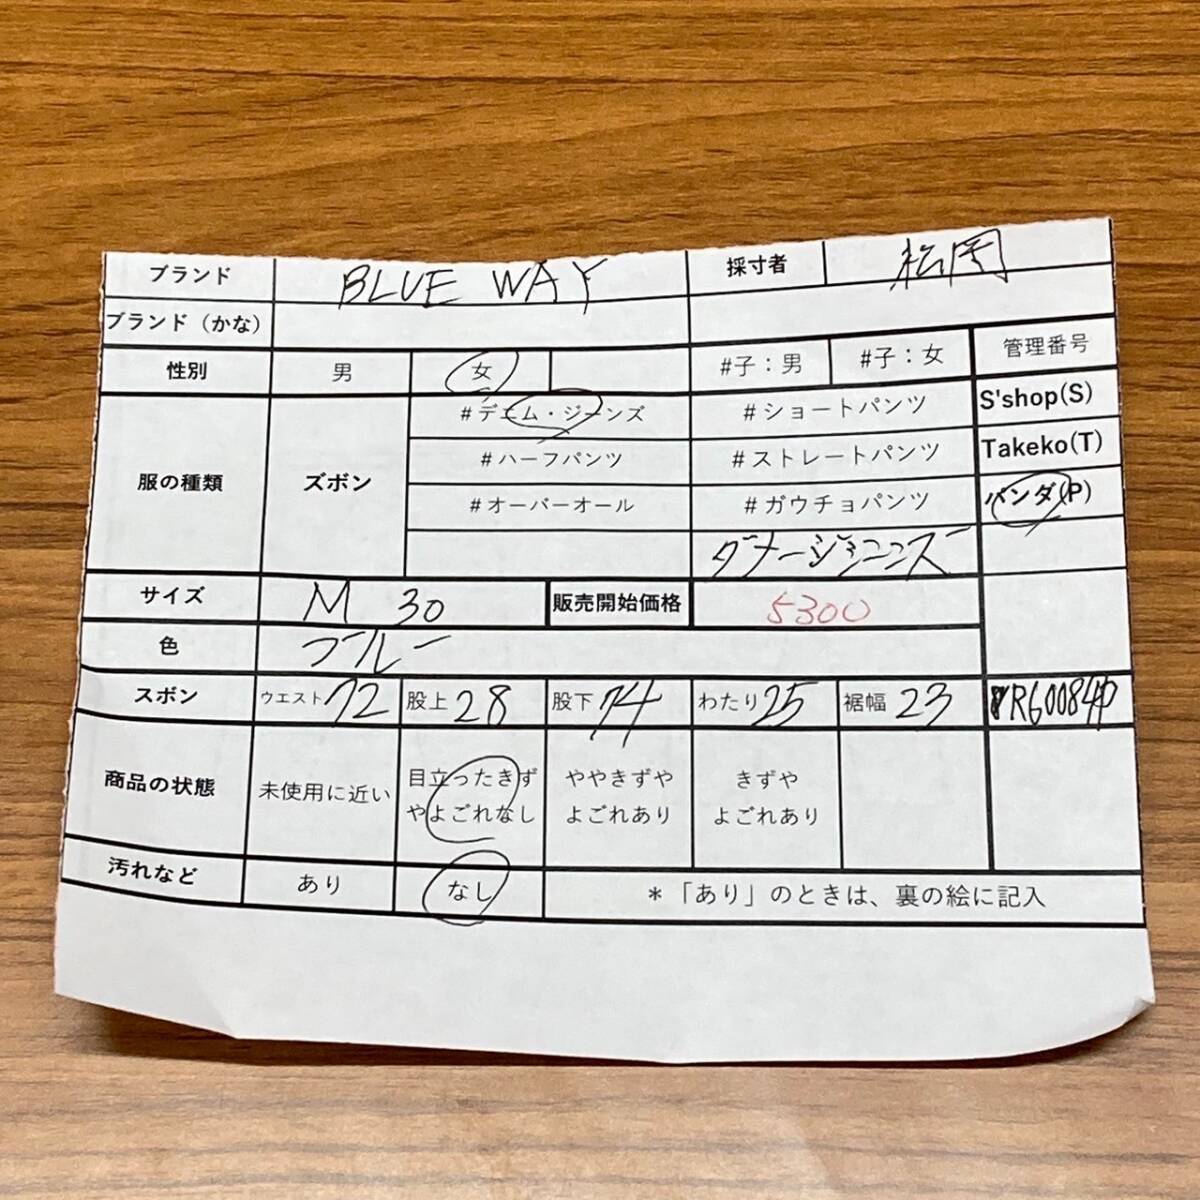 ブランド BLUE WAY 採寸者 松岡
ブランド（かな）
性別 男 女 #子：男 #子：女 管理番号
#デニム・ジーンズ #ショートパンツ S'shop(S)
服の種類 ズボン #ハーフパンツ #ストレートパンツ Takeko(T)
#オーバーオール #ガウチョパンツ パンダ(P)
ダメージジーンズ
サイズ M 30 販売開始価格 5300
色 ブルー
スボン ウエスト 72 股上 28 股下 74 わたり 25 裾幅 23
商品の状態 未使用に近い 目立ったきず ややきずや きずや
やよごれなし よごれあり よごれあり
汚れなど あり なし *「あり」のときは、裏の絵に記入